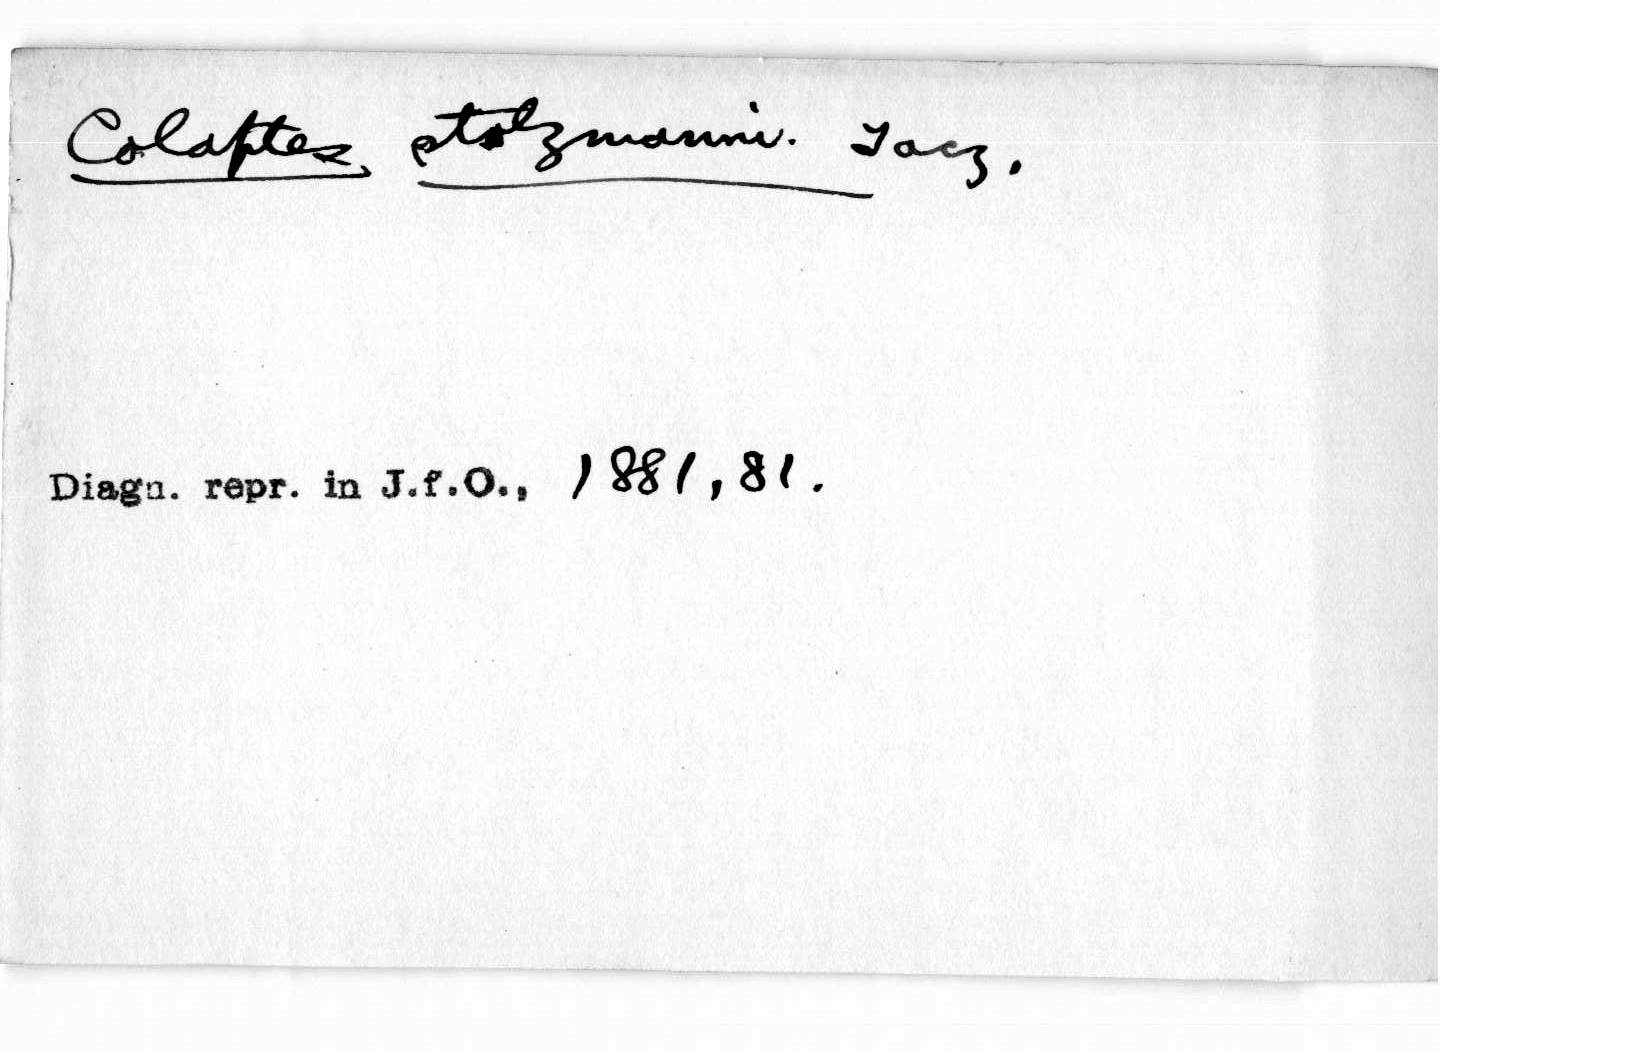 Colaptes stolzmanni. Tacz.
Diagn. repr. in J.f.O., 1881, 81.